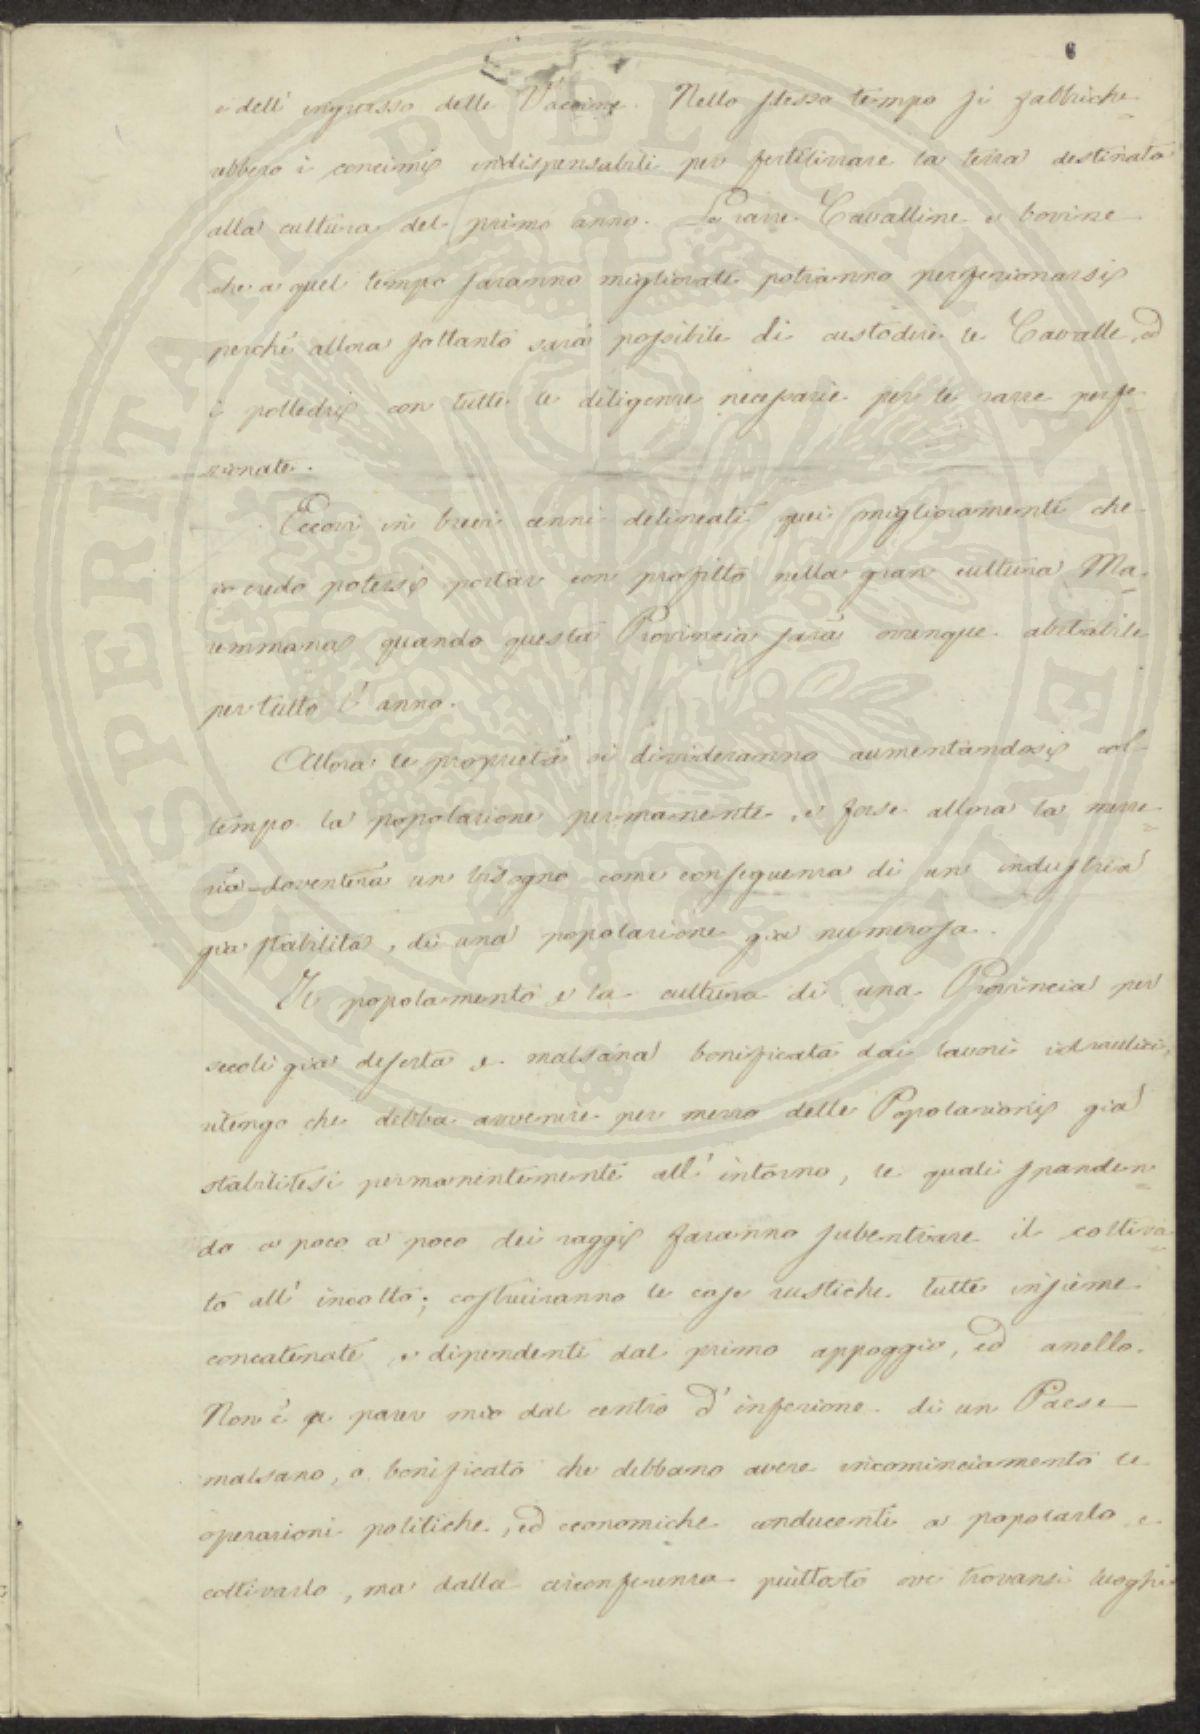 6
e dell' ingrasso delle Vaccine. Nello stesso tempo si fabbriche=
rebbero i concimi indispensabili per fertilizzare la terra destinata
alla cultura del primo anno. Le razze Cavalline e bovine
che a quel tempo saranno migliorate potranno perfezionarsi
perchè allora soltanto sarà possibile di custodire le Cavalle, ed
i polledri con tutte le diligenze necessarie per le razze perfe=
zionate.
Eccovi in brevi cenni delineati quei miglioramenti che
io credo potersi portar con profitto nella gran cultura Ma=
remmana quando questa Provincia sarà ovunque abitabile
per tutto l' anno.
Allora le proprietà si divideranno aumentandosi col
tempo la popolazione permanente, e forse allora la mezze=
ria doventerà un bisogno come conseguenza di un industria
già stabilita, di una popolazione già numerosa.
Il popolamento e la cultura di una Provincia per
secoli già deserta e malsana bonificata dai lavori idraulici,
ritengo che debba avvenire per mezzo delle Popolazioni già
stabilitesi permanentemente all' intorno, le quali spanden=
do a poco a poco dei raggi faranno subentrare il coltiva=
to all' incolto; costruiranno le case rustiche tutte insieme
concatenate e dipendenti dal primo appoggio, ed anello.
Non è a parer mio dal centro d' infezione di un Paese
malsano, o bonificato che debbano avere incominciamento le
operazioni politiche, ed economiche conducenti a popolarlo e
coltivarlo, ma dalla circonferenza piuttosto ove trovansi luoghi
PROSPERITATI PUBLICAE AUGENDAE